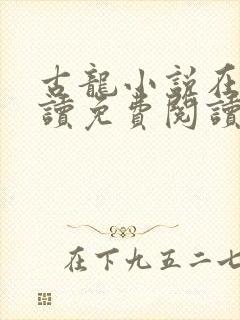 古龍小說在
讀免費閱讀
在下九五二七